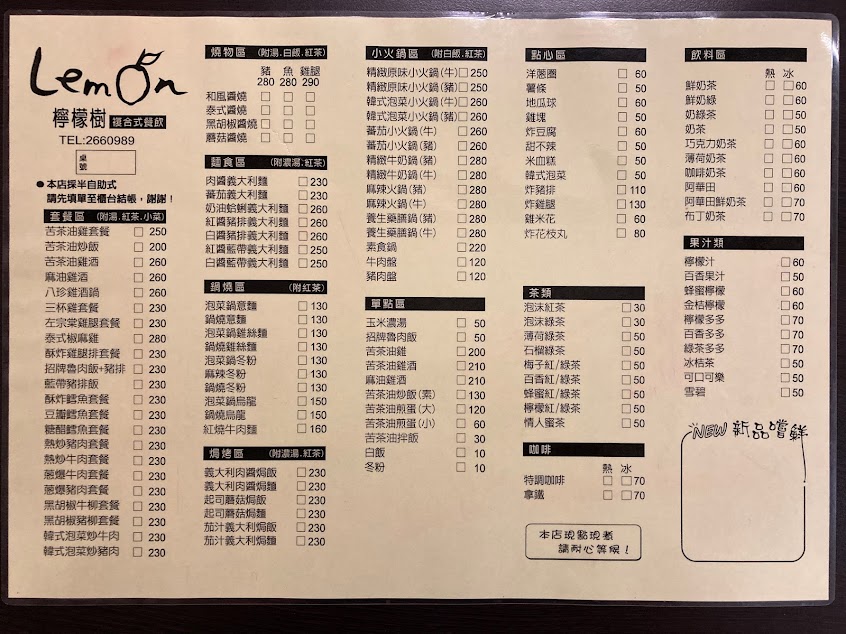 Lemon
檸檬樹 複合式餐飲
TEL:2660989
桌號
●本店採半自助式
請先填單至櫃台結帳，謝謝！
套餐區 (附湯.紅茶.小菜)
苦茶油雞套餐 □250
苦茶油炒飯 □200
苦茶油雞酒 □260
麻油雞酒 □260
八珍雞酒鍋 □260
三杯雞套餐 □230
左宗棠雞腿套餐 □230
泰式椒麻雞 □280
酥炸雞腿排套餐 □230
招牌魯肉飯+豬排 □230
藍帶豬排飯 □230
酥炸鱈魚套餐 □230
豆瓣鱈魚套餐 □230
糖醋鱈魚套餐 □230
熱炒豬肉套餐 □230
熱炒牛肉套餐 □230
蔥爆牛肉套餐 □230
蔥爆豬肉套餐 □230
黑胡椒牛柳套餐 □230
黑胡椒豬柳套餐 □230
韓式泡菜炒牛肉 □230
韓式泡菜炒豬肉 □230
燒物區 (附湯.白飯.紅茶)
豬 魚 雞腿
280 280 290
和風醬燒 □ □ □
泰式醬燒 □ □ □
黑胡椒醬燒 □ □ □
蘑菇醬燒 □ □ □
麵食區 (附濃湯.紅茶)
肉醬義大利麵 □230
蕃茄義大利麵 □230
奶油蛤蜊義大利麵 □260
紅醬豬排義大利麵 □260
白醬豬排義大利麵 □260
紅醬藍帶義大利麵 □250
白醬藍帶義大利麵 □250
鍋燒區 (附紅茶)
泡菜鍋意麵 □130
鍋燒意麵 □130
泡菜鍋雞絲麵 □130
鍋燒雞絲麵 □130
泡菜鍋冬粉 □130
麻辣冬粉 □130
鍋燒冬粉 □130
泡菜鍋烏龍 □150
鍋燒烏龍 □150
紅燒牛肉麵 □160
焗烤區 (附濃湯.紅茶)
義大利肉醬焗飯 □230
義大利肉醬焗麵 □230
起司蘑菇焗飯 □230
起司蘑菇焗麵 □230
茄汁義大利焗飯 □230
茄汁義大利焗麵 □230
小火鍋區 (附白飯.紅茶)
精緻原味小火鍋(牛) □250
精緻原味小火鍋(豬) □250
韓式泡菜小火鍋(牛) □260
韓式泡菜小火鍋(豬) □260
蕃茄小火鍋(牛) □260
蕃茄小火鍋(豬) □260
精緻牛奶鍋(牛) □280
精緻牛奶鍋(豬) □280
麻辣火鍋(豬) □280
麻辣火鍋(牛) □280
養生藥膳鍋(豬) □280
養生藥膳鍋(牛) □280
素食鍋 □220
牛肉盤 □120
豬肉盤 □120
單點區
玉米濃湯 □50
招牌魯肉飯 □50
苦茶油雞 □200
苦茶油雞酒 □210
麻油雞酒 □210
苦茶油炒飯(素) □130
苦茶油煎蛋(大) □120
苦茶油煎蛋(小) □60
苦茶油拌飯 □30
白飯 □10
冬粉 □10
點心區
洋蔥圈 □60
薯條 □50
地瓜球 □60
雞塊 □50
炸豆腐 □60
甜不辣 □50
米血糕 □50
韓式泡菜 □50
炸豬排 □110
炸雞腿 □130
雞米花 □60
炸花枝丸 □80
茶類
泡沫紅茶 □30
泡沫綠茶 □30
薄荷綠茶 □50
石榴綠茶 □50
梅子紅/綠茶 □50
百香紅/綠茶 □50
蜂蜜紅/綠茶 □50
檸檬紅/綠茶 □50
情人蜜茶 □50
咖啡
熱 冰
特調咖啡 □ □70
拿鐵 □ □70
本店現點現煮
請耐心等候！
飲料區
熱 冰
鮮奶茶 □ □60
鮮奶綠 □ □60
奶綠茶 □ □50
奶茶 □ □50
巧克力奶茶 □ □60
薄荷奶茶 □ □60
咖啡奶茶 □ □60
阿華田 □ □60
阿華田鮮奶茶 □ □70
布丁奶茶 □ □70
果汁類
檸檬汁 □60
百香果汁 □50
蜂蜜檸檬 □60
金桔檸檬 □60
檸檬多多 □70
百香多多 □70
綠茶多多 □70
冰桔茶 □50
可口可樂 □50
雪碧 □50
NEW 新品嚐鮮